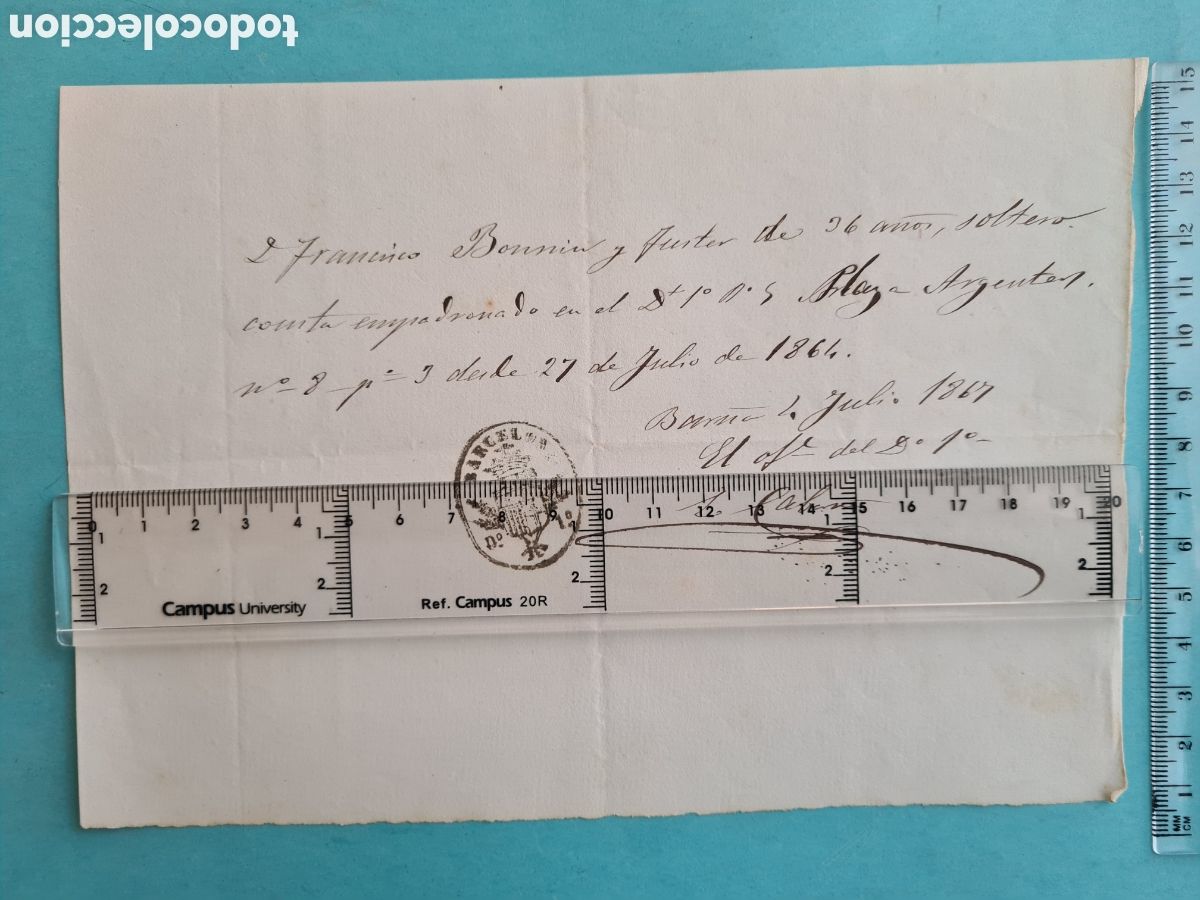 todocoleccion
D Francisco Bonnin y Fuster de 36 años, soltero.
consta empadronado en el Dt 1º Bº 5 Plaza Argenter,
nº 8 pº 3 desde 27 de Julio de 1864.
Barna 4 Julio 1867
El ofl. del Dº 1º
BARCELONA
Dº 1º
0 1 2 3 4 5 6 7 8 9 10 11 12 13 14 15 16 17 18 19 20
1 1 1 1 1
2 2 2 2 2
Campus University
Ref. Campus 20R
15
14
13
12
11
10
9
8
7
6
5
4
3
2
1
MM
CM